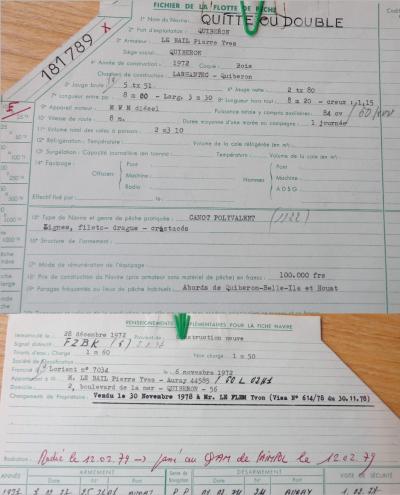 FICHIER DE LA FLOTTE DE PÊCHE
181789 X
1° Nom du Navire : QUITTE OU DOUBLE
2° Port d'exploitation : QUIBERON
3° Armateur : LE BAIL Pierre Yves
Siège social : QUIBERON
4° Année de construction : 1972 Coque : Bois
Chantiers de construction : - Quiberon
5° Jauge brute : 5 tx 51 6° Jauge nette : 2 tx 80
7° Longueur entre pp : 8 m 80 - Larg, 3 m 30 8° Longueur hors tout : 8 m 20 - creux : 1,15
9° Appareil moteur : M W M diésel Puissance réelle y compris auxiliaires : 84 cv
10° Vitesse de route : 8 n. Durée moyenne d'une marée ou campagne : 1 journée
11° Volume total des cales à poisson : 2 m3 10
12° Réfrigération : Température : Volume de la cale réfrigérée (en m³) :
13° Surgélation : Capacité journalière (en tonnes) : Température : Volume de la cale (en m³) :
14° Équipage : Officiers Pont : Machine : Radio : Hommes Pont : Machine : A D S G :
Effectif fixé par : le
15° Type de Navire et genre de pêche pratiquée : CANOT POLYVALENT (1122)
Lignes, filets - drague - crustacés
16° Structure de l'armement :
17° Mode de rémunération de l'équipage :
18° Prix de construction du Navire (prix armateur sans matériel de pêche) en francs : 100.000 frs
19° Parages fréquentés ou lieux de pêche habituels : Abords de Quiberon-Belle-Ile et Houat
RENSEIGNEMENTS COMPLÉMENTAIRES POUR LA FICHE NAVIRE
Immatriculé le : 28 décembre 1972 Provenant de : construction neuve
Signal distinctif : FZBK
Tirants d'eau : Charge 1 m 60 Non chargé : 1 m 50
Société de Classification :
Francisé à Lorient n° 7034 le 6 novembre 1972
Appartenant à : M. LE BAIL Pierre Yves - Auray 44585
Domicile : 2, boulevard de la mer - QUIBERON - 56
Changements de Propriétaire : Vendu le 30 Novembre 1978 à Mr. LE FLEM Yvon (Visa N° 614/78 du 30.11.78)
Radiation : Radié le 12.02.79 → passé au QAM de PAIMPOL le 12.02.79
ANNÉES ARMEMENT DÉSARMEMENT VISITE DE SÉCURITÉ
Date N° Port Genre de Navigation Date N° Port Date